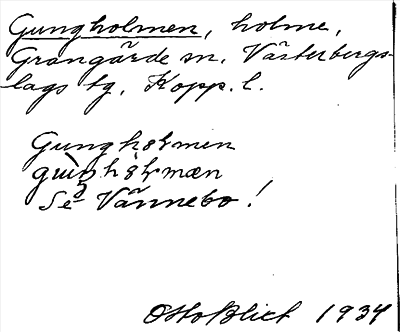 Gungholmen, holme,
Grangärde sn. Västerbergs-
lags tg, Kopp. l.
Gunghålmen
Se Vännebo!
Otto Blixt 1934